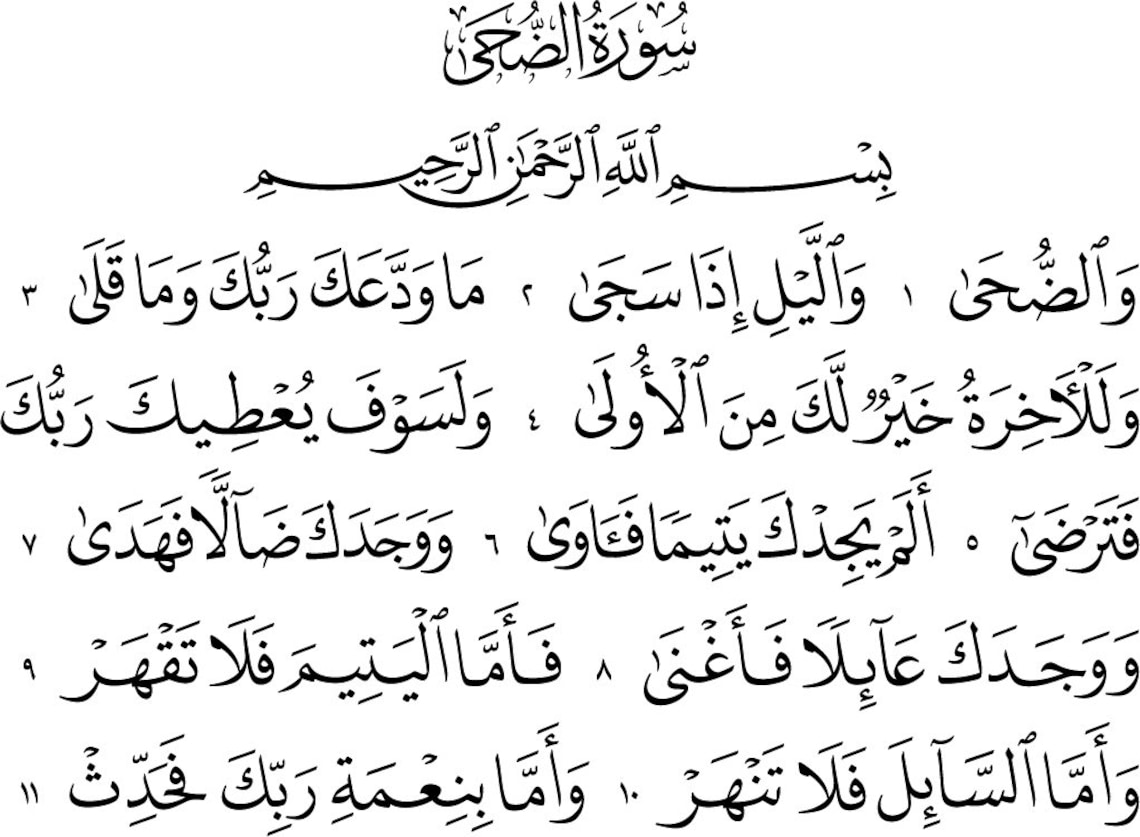 سُورَةُ الضُّحَىٰ
بِسْمِ ٱللَّهِ ٱلرَّحْمَٰنِ ٱلرَّحِيمِ
وَٱلضُّحَىٰ ١ وَٱلَّيْلِ إِذَا سَجَىٰ ٢ مَا وَدَّعَكَ رَبُّكَ وَمَا قَلَىٰ ٣
وَلَلْءَاخِرَةُ خَيْرٌ لَّكَ مِنَ ٱلْأُولَىٰ ٤ وَلَسَوْفَ يُعْطِيكَ رَبُّكَ
فَتَرْضَىٰٓ ٥ أَلَمْ يَجِدْكَ يَتِيمًا فَـَٔاوَىٰ ٦ وَوَجَدَكَ ضَآلًّا فَهَدَىٰ ٧
وَوَجَدَكَ عَآئِلًا فَأَغْنَىٰ ٨ فَأَمَّا ٱلْيَتِيمَ فَلَا تَقْهَرْ ٩
وَأَمَّا ٱلسَّآئِلَ فَلَا تَنْهَرْ ١٠ وَأَمَّا بِنِعْمَةِ رَبِّكَ فَحَدِّثْ ١١